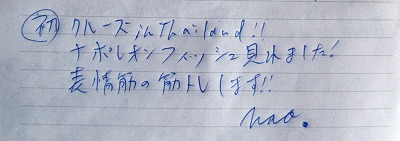 初 クルーズ in Thailand!!
ナポレオンフィッシュ見れました!
表情筋の筋トレします!!
nao.